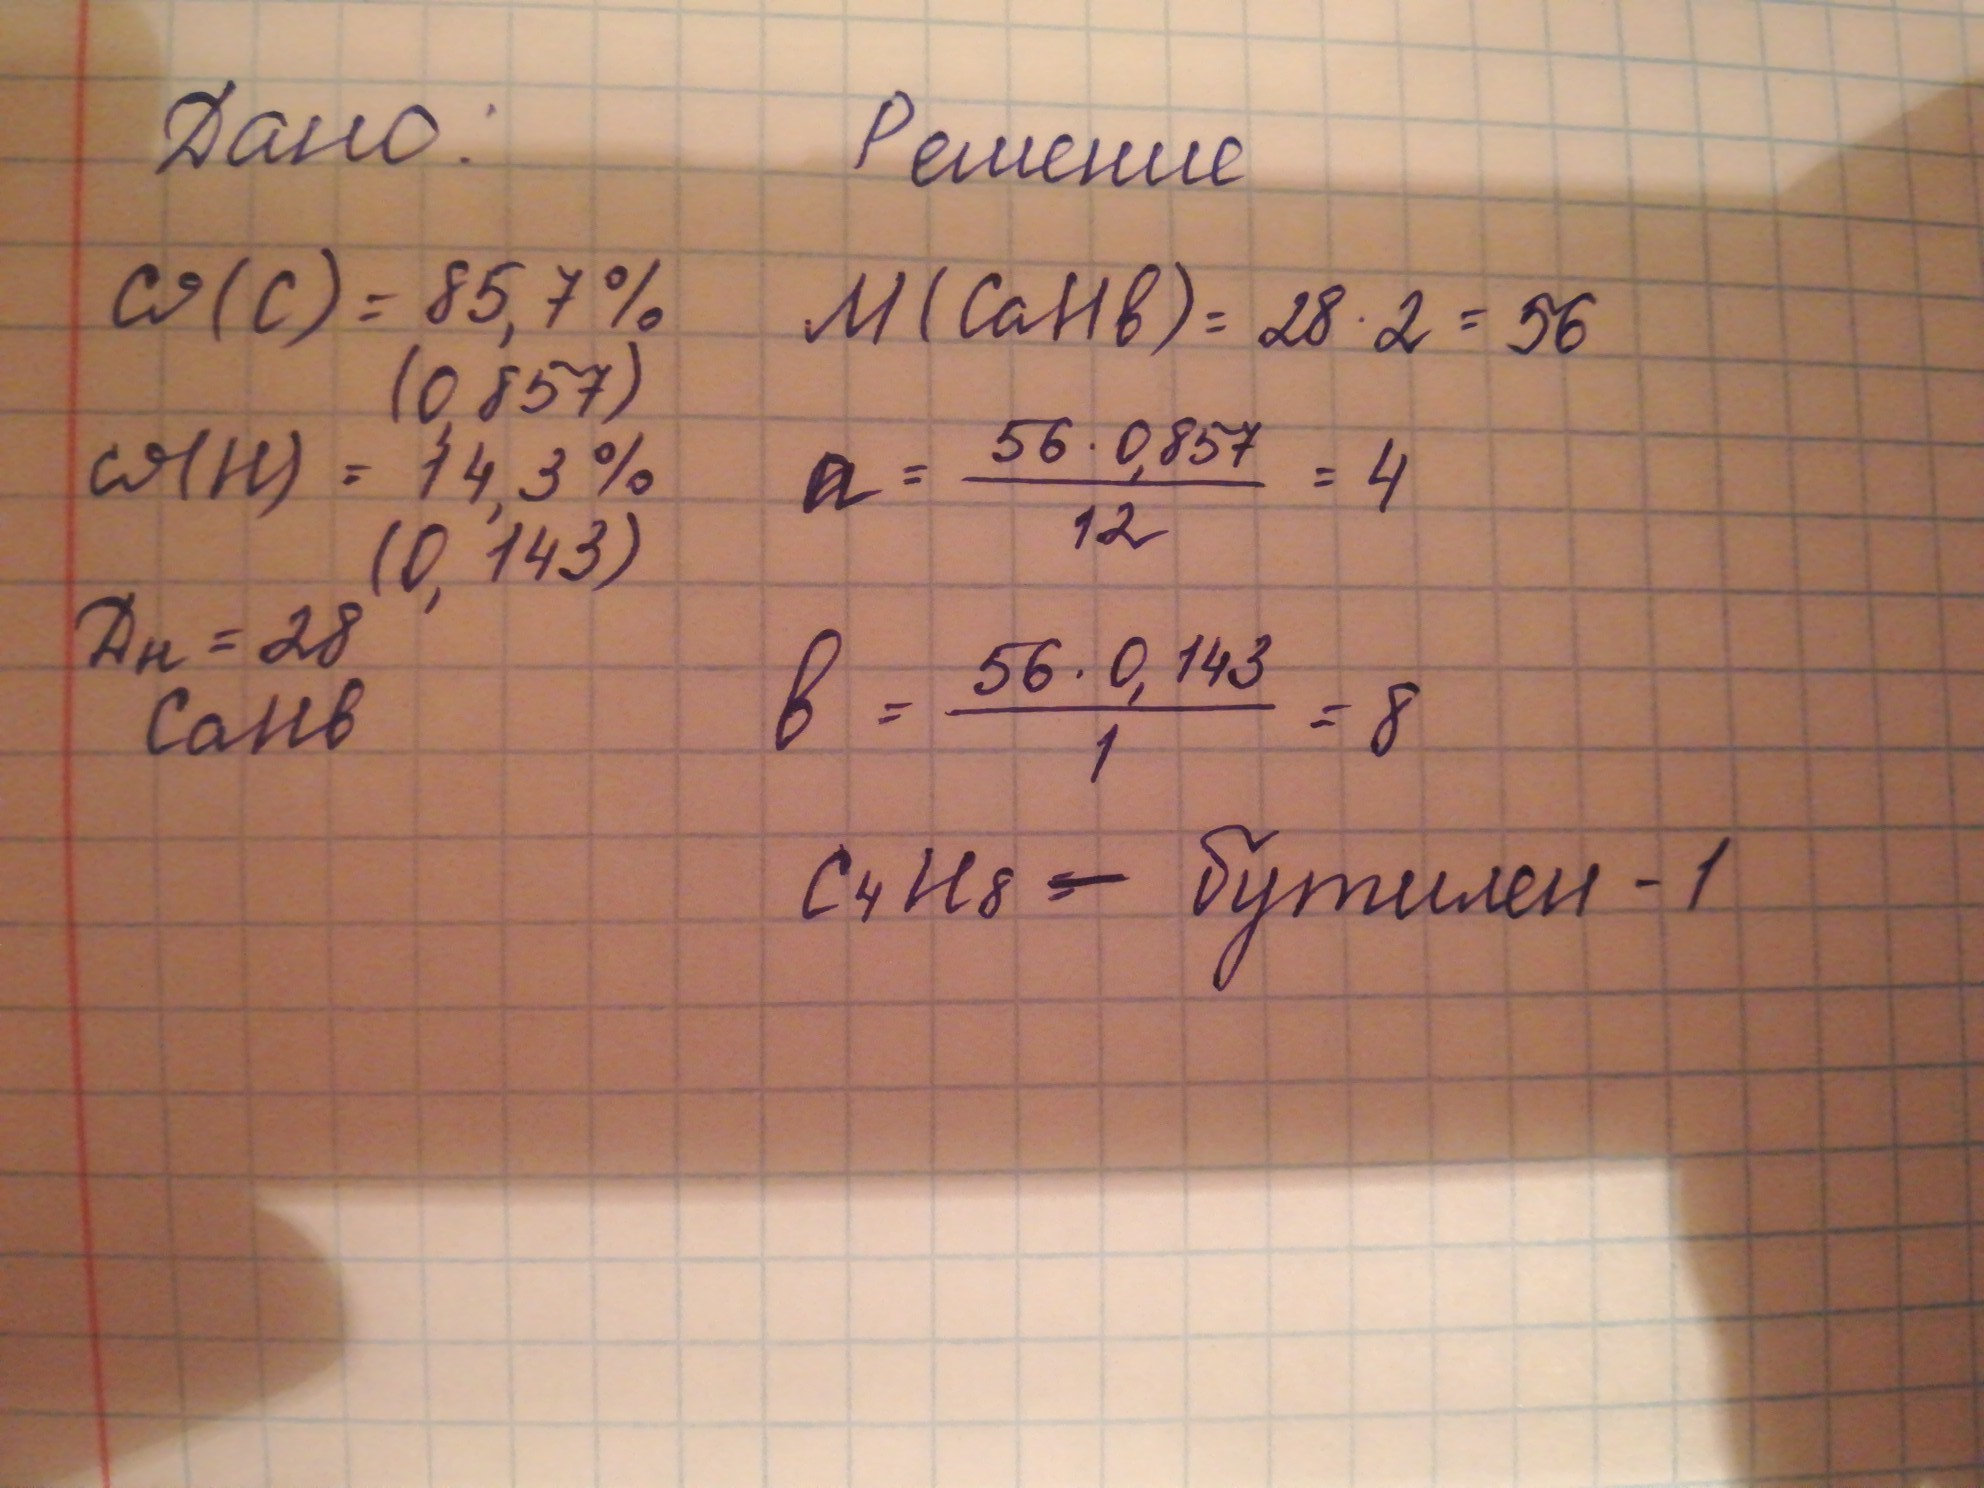 Дано:
ω(C) = 85,7%
(0,857)
ω(H) = 14,3%
(0,143)
Dн = 28
CaHв
Решение
M(CaHв) = 28 · 2 = 56
a = 56 · 0,857 / 12 = 4
в = 56 · 0,143 / 1 = 8
C₄H₈ – бутилен - 1